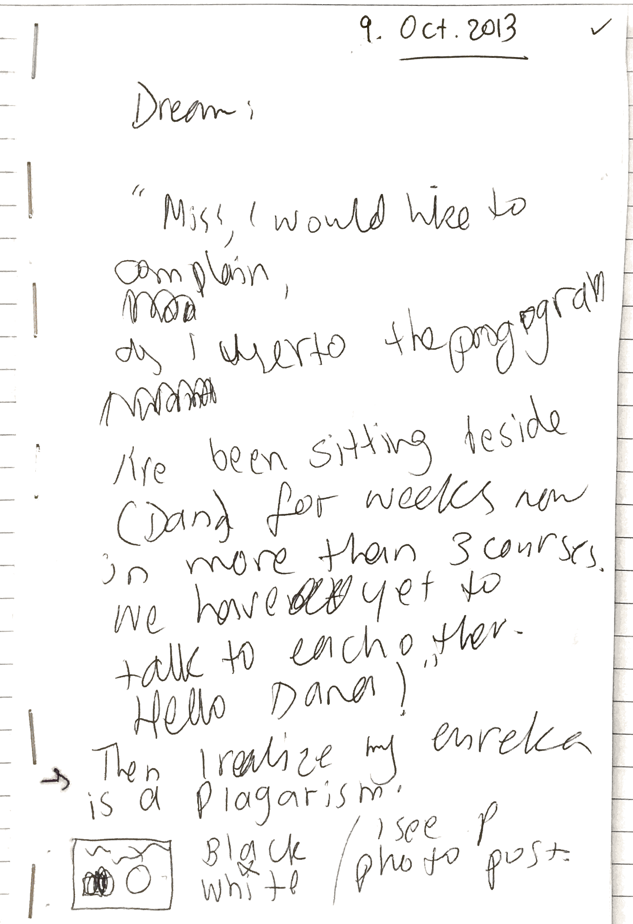 9. Oct. 2013
Dream:
"Miss, I would like to
complain,
as I to the progogram
I've been sitting beside
(Dana) for weeks now
in more than 3 courses.
we have yet to
talk to each other.
Hello Dana!"
Then I realize my eureka
→ is a Plagarism.
Black & white / I see P photo post.